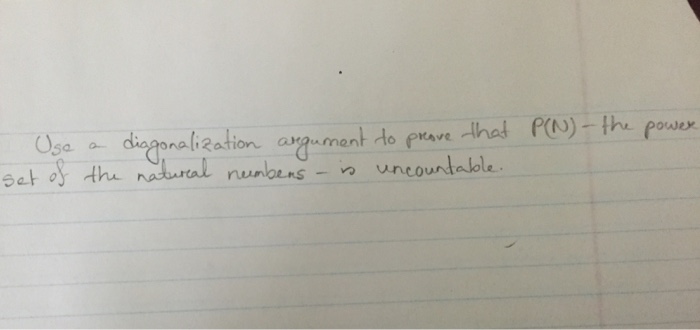 Use a diagonalization argument to prove that P(N) – the power
set of the natural numbers – is uncountable.